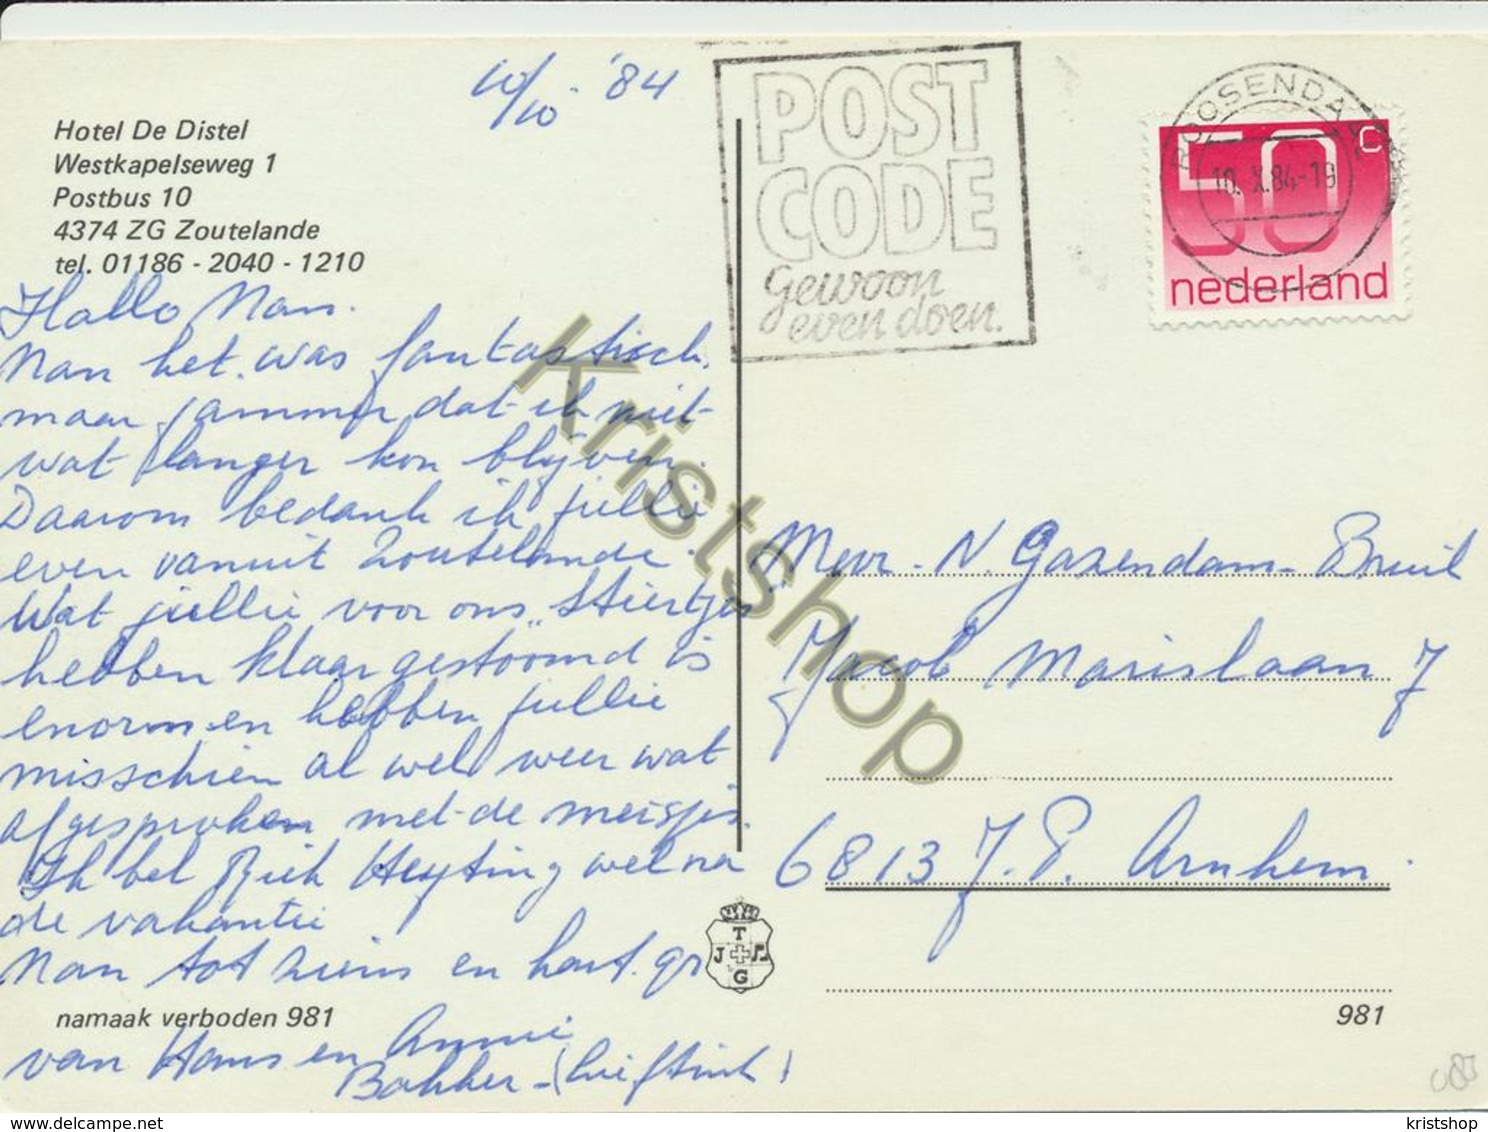 10/10 '84
Hotel De Distel
Westkapelseweg 1
Postbus 10
4374 ZG Zoutelande
tel. 01186 - 2040 - 1210
Hallo Nan.
Nan het was fantastisch,
maar jammer dat ik niet
wat langer kon blijven.
Daarom bedank ik jullie
even vanuit Zoutelande.
Wat jullie voor ons "Stiertjes"
hebben klaar gestoomd is
enorm en hebben jullie
misschien al wel weer wat
afgesproken met de meisjes.
Ik bel Riek Heyting wel na
de vakantie
Nan tot ziens en hart. gr
namaak verboden 981
van Hans en Annie
Bakker - (
POST
CODE
gewoon
even doen.
ROOSENDAAL
10. X.84-19
50 c
nederland
Mevr. N. Gazendam-Bruil
Jacob Marislaan 7
6813 J.E. Arnhem.
T
J
G
981
Kristshop
www.delcampe.net
kristshop